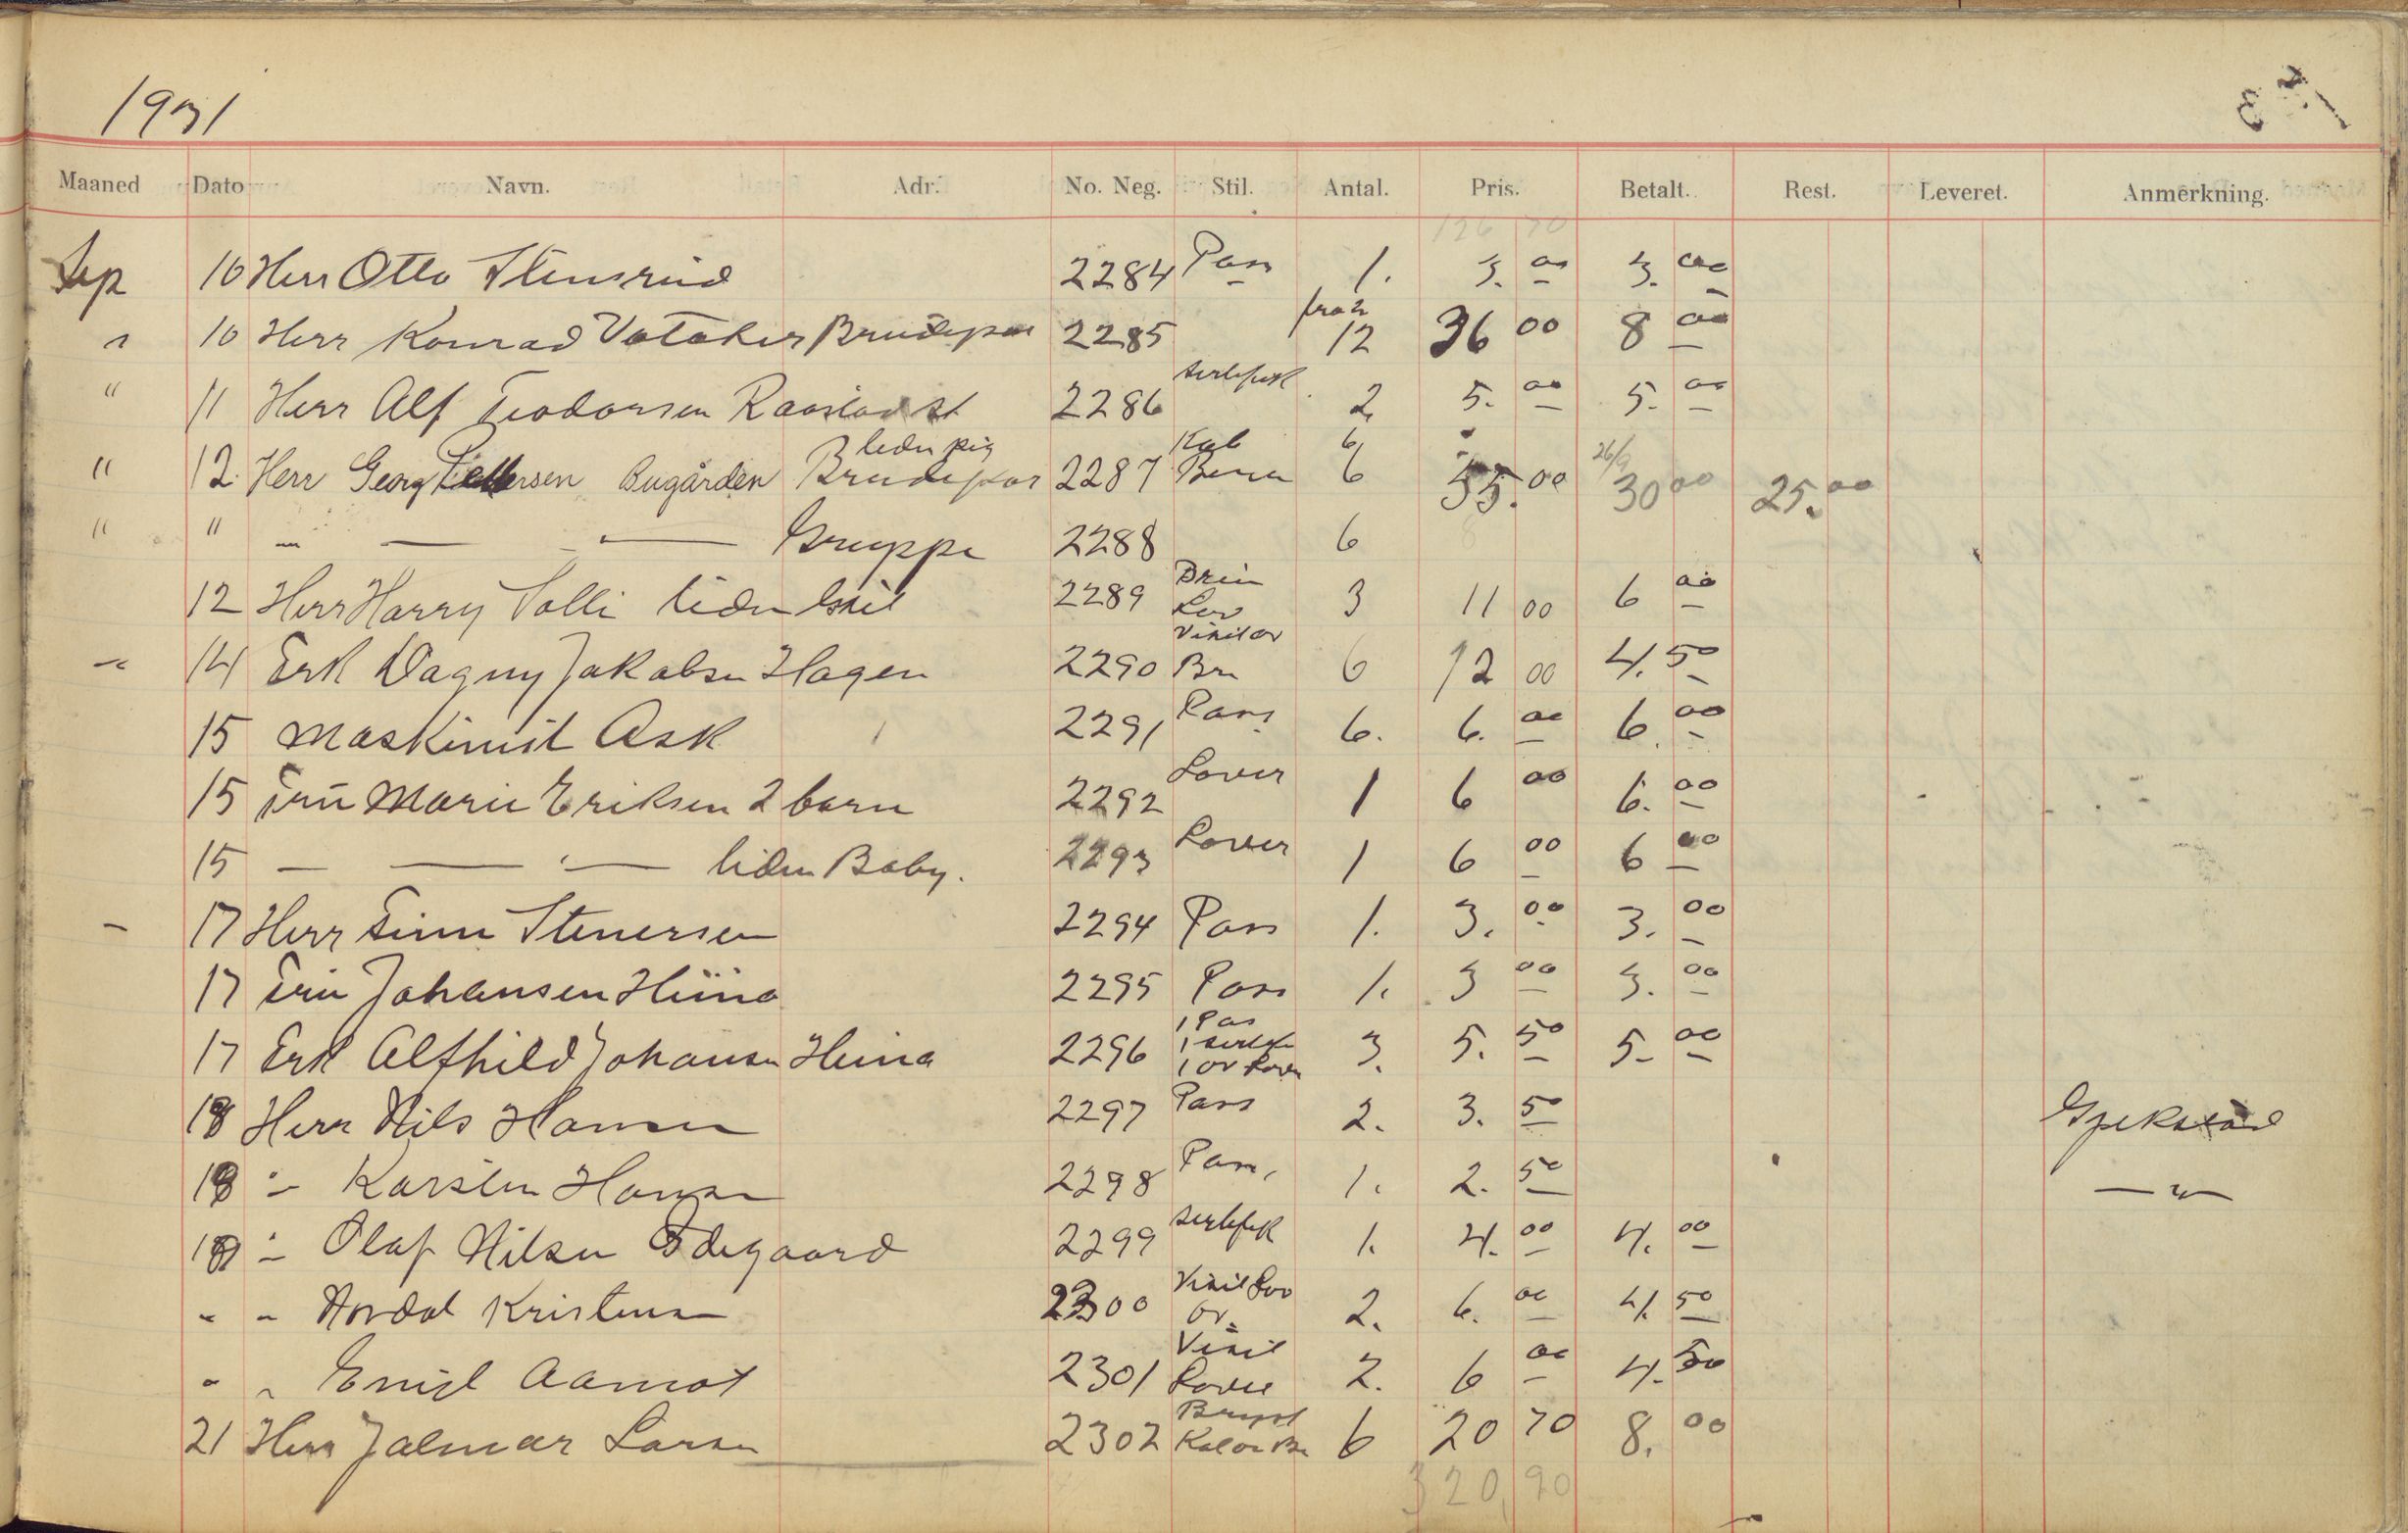 1931
Maaned Dato Navn. Adr. No. Neg. Stil. Antal. Pris. Betalt. Rest. Leveret. Anmerkning.
126 70
Sep 10 Herr Otto Stensrud 2284 Pass 1. 3. 00 3. 00
" 10 Herr Konrad Brudepar 2285 fra 2 12 36 00 8 00
" 11 Herr Alf Teodorsen Raastad st 2286 sertefik 2 5. 00 5. 00
" 12. Herr Georg Pettersen Bugården Brudepar liden pig 2287 Kab Brun 6 6 55. 00 26/9 30 00 25. 00
" " — — — Gruppe 2288 6
12 Herr Harry Solli liden Gut 2289 3 11 00 6 00
" 14 Frk Dagny Jakobsen Hagen 2290 Visit or Br 6 12 00 4. 50
15 Maskinist Ask 2291 Pass 6. 6. 00 6. 00
15 Fru Marie Eriksen 2 barn 2292 Lover 1 6 00 6. 00
15 — — " — liden Baby. 2293 Lover 1 6 00 6 00
- 17 Herr Finn Stenersen 2294 Pass 1. 3. 00 3. 00
17 Fru Johansen Huna 2295 Pass 1. 3 00 3. 00
17 Frk Alfhild Johansen Huna 2296 1 Pas 1 sertefi 1 or Lover 3. 5. 50 5. 00
18 Herr Nils Hansen 2297 Pass 2. 3. 50 Gjekstad
18 " Karsten Hansen 2298 Pass, 1. 2. 50 — " —
18 " Olaf Nilsen Ødegaard 2299 sertefik 1. 4. 00 4. 00
" " Kristensen 2300 Visit Lov or. 2. 6. 00 4. 50
" " Emil Aamot 2301 Visit Lover 2. 6 00 4. 50
21 Herr Jalmar Larsen 2302 Bryst Kol or Br 6 20 70 8. 00
320,90